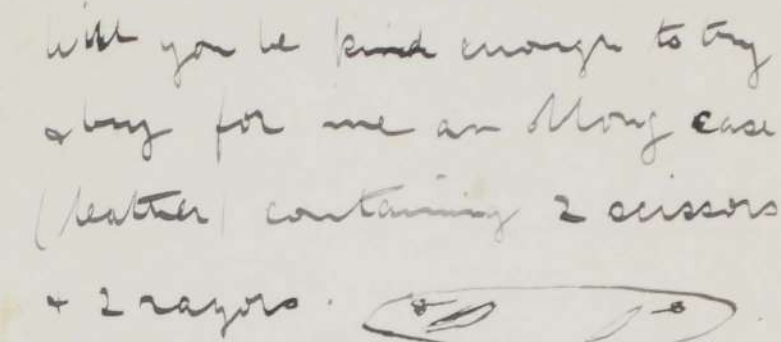 will you be kind enough to try
& buy for me an oblong case
(leather) containing 2 scissors
& 2 razors.